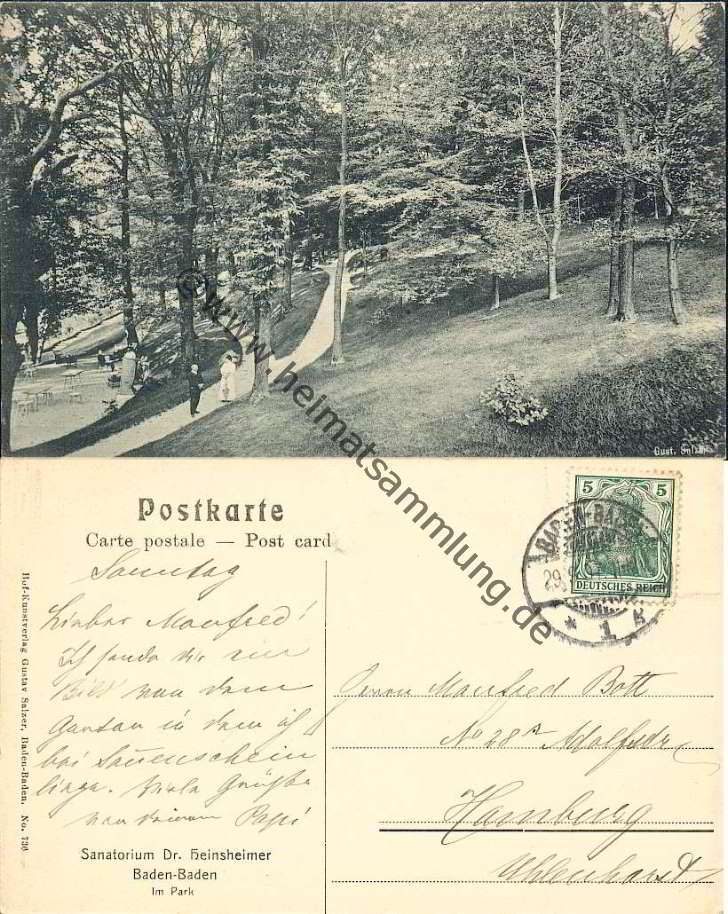 ©www.heimatsammlung.de
Gust. Salzer
Postkarte
Carte postale — Post card
5 5
DEUTSCHES REICH
BADEN-BADEN
29.
* 1 k
Sonntag
Lieber Manfred!
Ich sende dir ein
Bild von dem
Garten in dem ich
bei Sonnenschein
liege. Viele Grüße
von deinem Papi
Herrn Manfred Bott
No 28 Adolfstr
Hamburg
Uhlenhorst
Sanatorium Dr. Heinsheimer
Baden-Baden
Im Park
Hof-Kunstverlag Gustav Salzer, Baden-Baden. No. 736